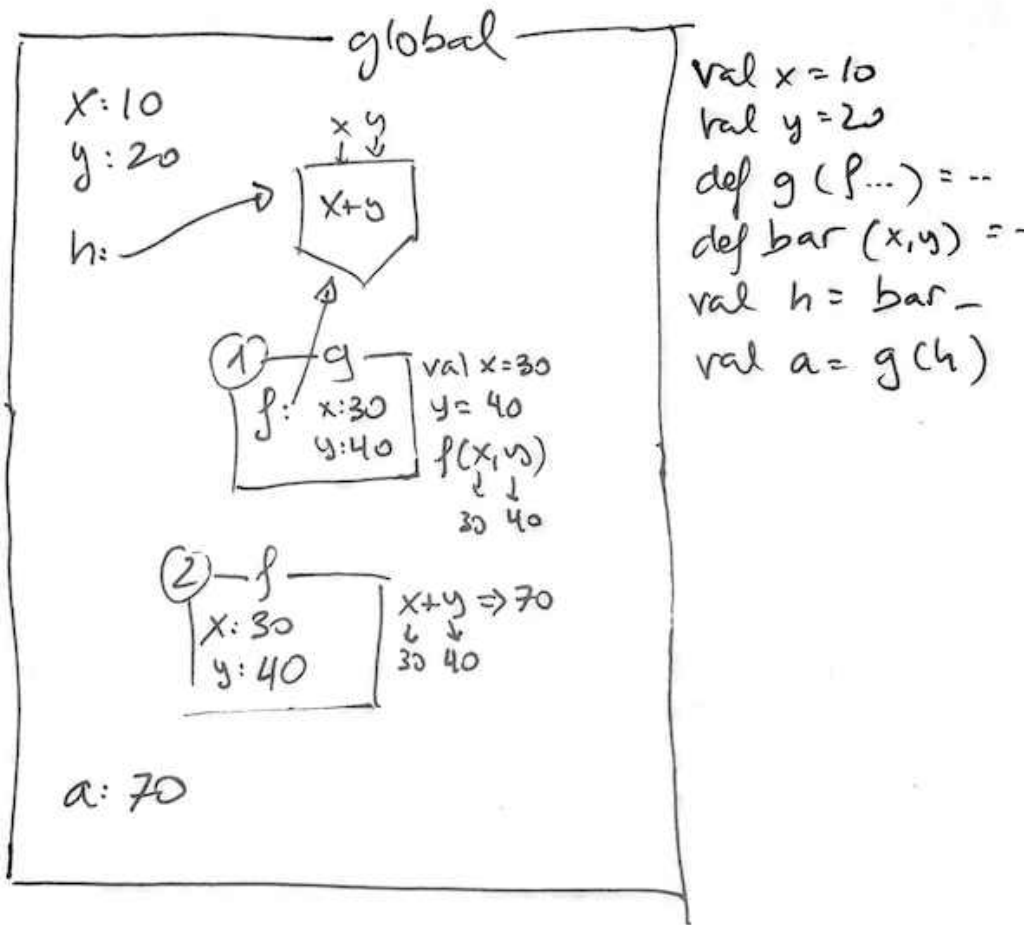 global
x:10
y:20
h:
x y
x+y
1 g
f: x:30
y:40
val x=30
y= 40
f(x,y)
30 40
2 f
x: 30
y: 40
x+y => 70
30 40
a: 70
val x = 10
val y = 20
def g (f...) = --
def bar (x,y) = -
val h = bar _
val a = g(h)